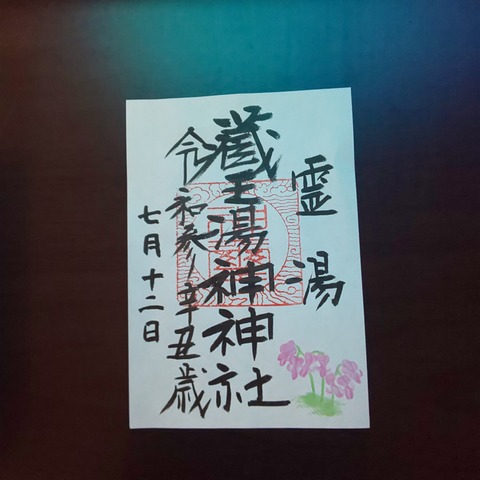 霊湯
蔵王湯神神社
令和参辛丑歳
七月十二日